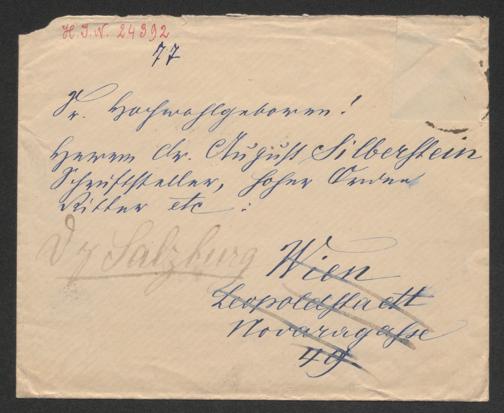 H. I. N. 24392
77
Sr. Hochwohlgeboren!
Herrn Dr. August Silberstein
Schriftsteller, hoher Orden
Ritter etc:
Salzburg
Wien
Leopoldstadt
Novaragasse
49